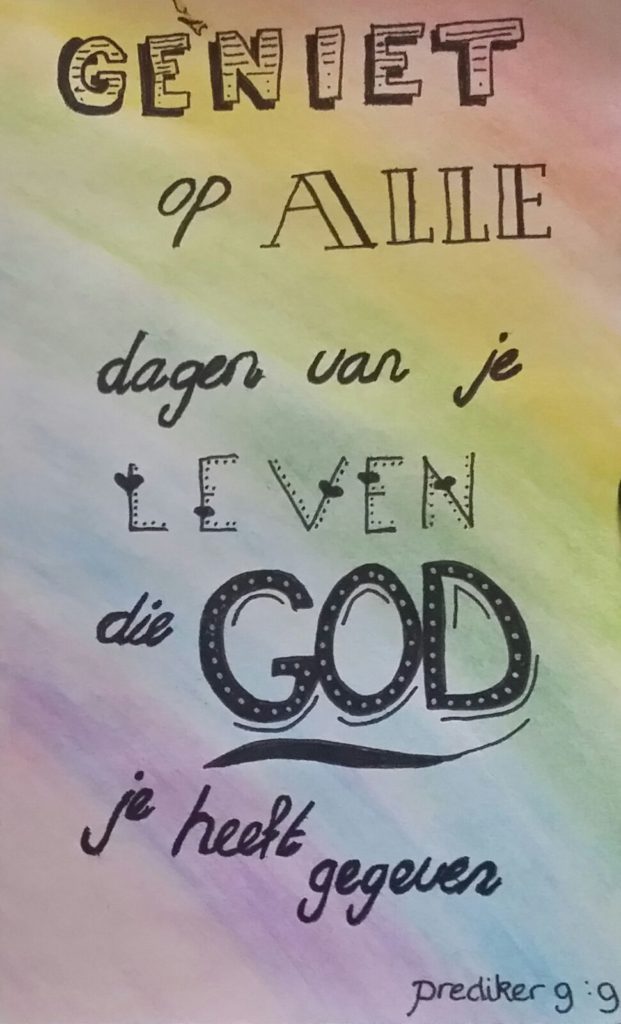 GENIET
op ALLE
dagen van je
LEVEN
die GOD
je heeft
gegeven
prediker 9:9